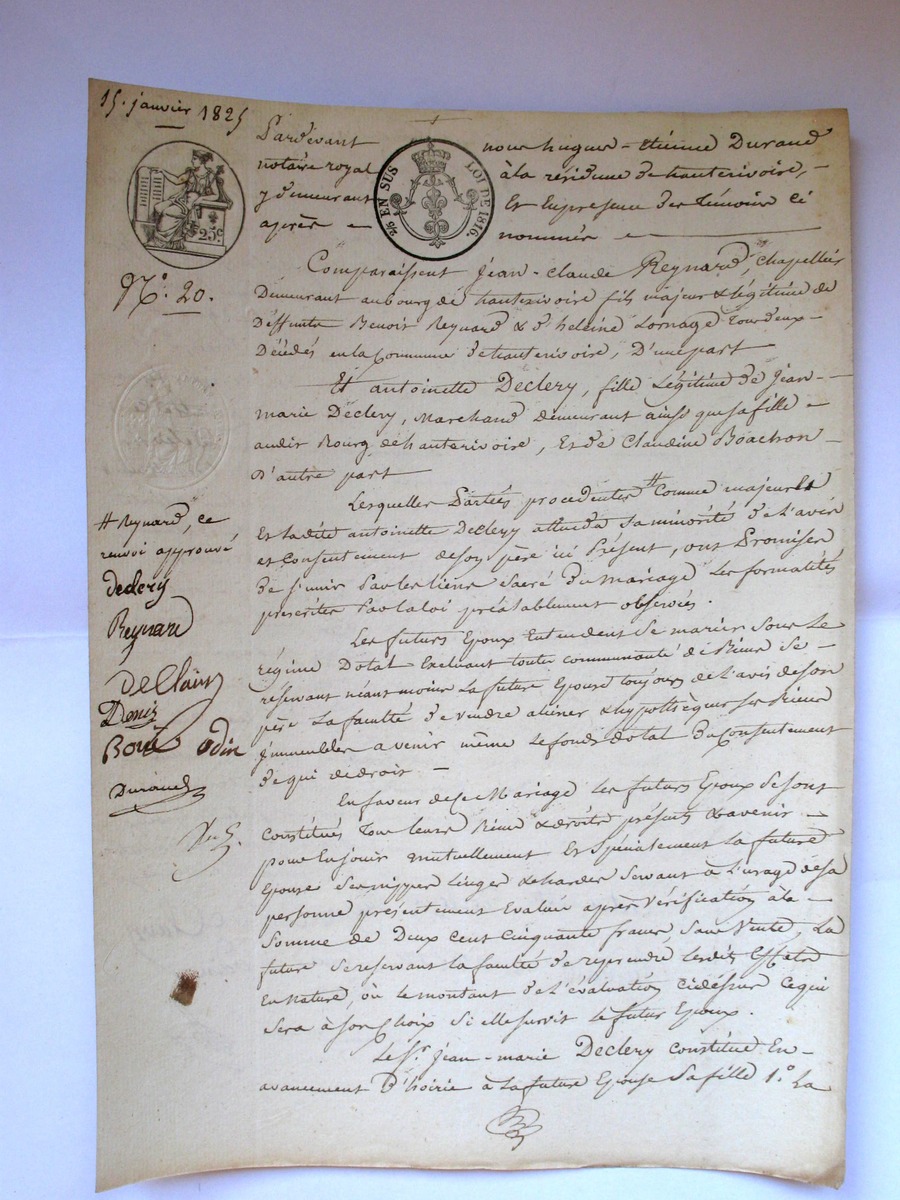 15. janvier 1825
Pardevant nous hugues-étienne Durand
notaire royal à la résidence de hauterivoire,
y demeurant Et En presence des témoins ci
après nommés
2/10 EN SUS LOI DE 1816
25c
N.o 20.
Comparaissent Jean-Claude Reynard, chapellier
Demeurant au bourg de hauterivoire fils majeur & légitime de
Déffunts Benoit Reynard & d'heleine Lornage tous deux
Décédés en la Commune de hauterivoire, D'une part
Et antoinette Declery, fille Légitime de Jean-
marie Declery, Marchand demeurant ainsi que sa fille
audit Bourg de hauterivoire, Et de Claudine Boachon
D'autre part
Lesquelles Parties procedentes # comme majeur &
Et ladite antoinette Declery attendu sa minorité de l'avis
et Consentement de son père ici Présent, ont Promises
de s'unir Par les liens Sacré du mariage Les formalités
prescrites Par la loi préalablement observées.
# Reynard, ce
renvoi approuvé
declery
Reynard
Denis
Odin
Durand
Les futurs Epoux Entendent Se marier Sous Le
régime Dotal Excluant toute communauté de Biens Se
reservant néant moins La future Epouse toujours de l'avis de son
père La faculté de vendre aliéner & hypothèquer ses Biens
Jmmeubles a venir même le fonds dotal du Consentement
de qui de droit
En faveur de ce Mariage les futurs Epoux Se sont
Constitués Tous leurs Biens & droits présents & avenir
pour En jouir mutuellement Et Spécialement La future
Epouse Ses nippes Linges & hardes Servant à L'usage de sa
personne présentement Evalués après vérification à la
Somme de Deux cent Cinquante francs Sans Vente, La
future Se reservant la faculté de reprendre lesdits Effets
En Nature, ou le montant de l'évaluation cidessus Ce qui
Sera à Son Choix Si elle survit le futur Epoux.
Le Sr. Jean-marie Declery constitue En
avancement D'hoirie à La future Epouse Sa fille 1.o La